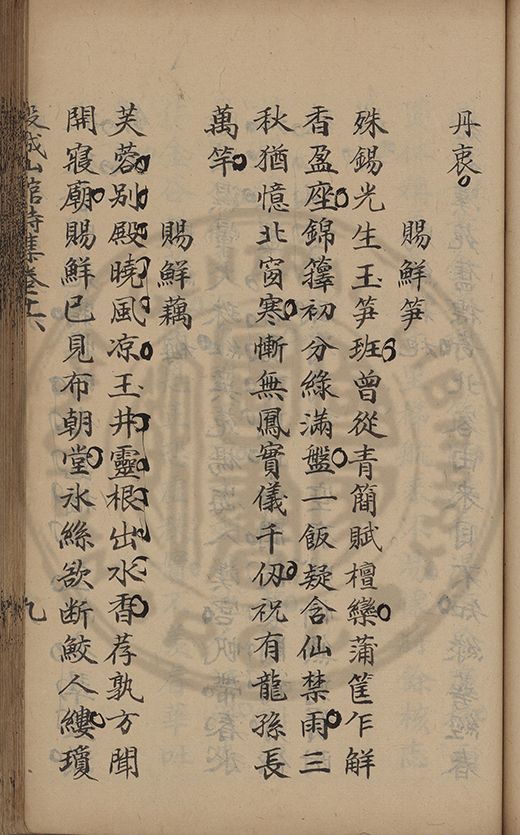 丹衷
賜鮮笋
殊錫光生玉笋班曾從青簡賦檀欒蒲筐乍解
香盈座錦籜初分綠滿盤一飯疑含仙禁雨三
秋猶憶北窗寒慚無鳳實儀千仞祝有龍孫長
萬竿
賜鮮藕
芙蓉別殿曉風凉玉井靈根出水香荐孰方聞
開寢廟賜鮮已見布朝堂氷絲欲断鮫人縷瓊
穀城山館詩集卷十六
九